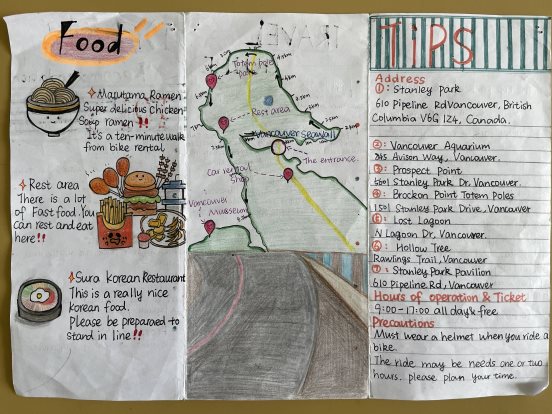 Food
Marutama Ramen
Super delicious Chicken
Soup ramen!!
It's a ten-minute walk
from bike rental
Rest area
There is a lot
of Fast food. You
can rest and eat
here!!
Sura Korean Restaurant
This is a really nice
Korean food.
Please be preparaed to
stand in line!!
TRAVEL
Totem pole
park
Rest area
Vancouver Seawall
The entrance.
Car rental
Shop
Vancouver
TiPS
Address
①: Stanley park
610 Pipeline Rd Vancouver, British
Columbia V6G 1Z4, Canada.
②: Vancouver Aquarium
845 Avison Way, Vancouver.
③: Prospect Point
5601 Stanley Park Dr. Vancouver.
④: Brockon Point Totem Poles
1501 Stanley Park Drive, Vancouver
⑤: Lost Lagoon
N Lagoon Dr, Vancouver.
⑥: Hollow Tree
Rawlings Trail, Vancouver
⑦: Stanley Park Pavilion
610 Pipeline Rd, Vancouver
Hours of operation & Ticket
9:00-17:00 all day & free
Precautions
Must wear a helmet when you ride a
bike.
The ride may be needs one or two
hours. please plan your time.